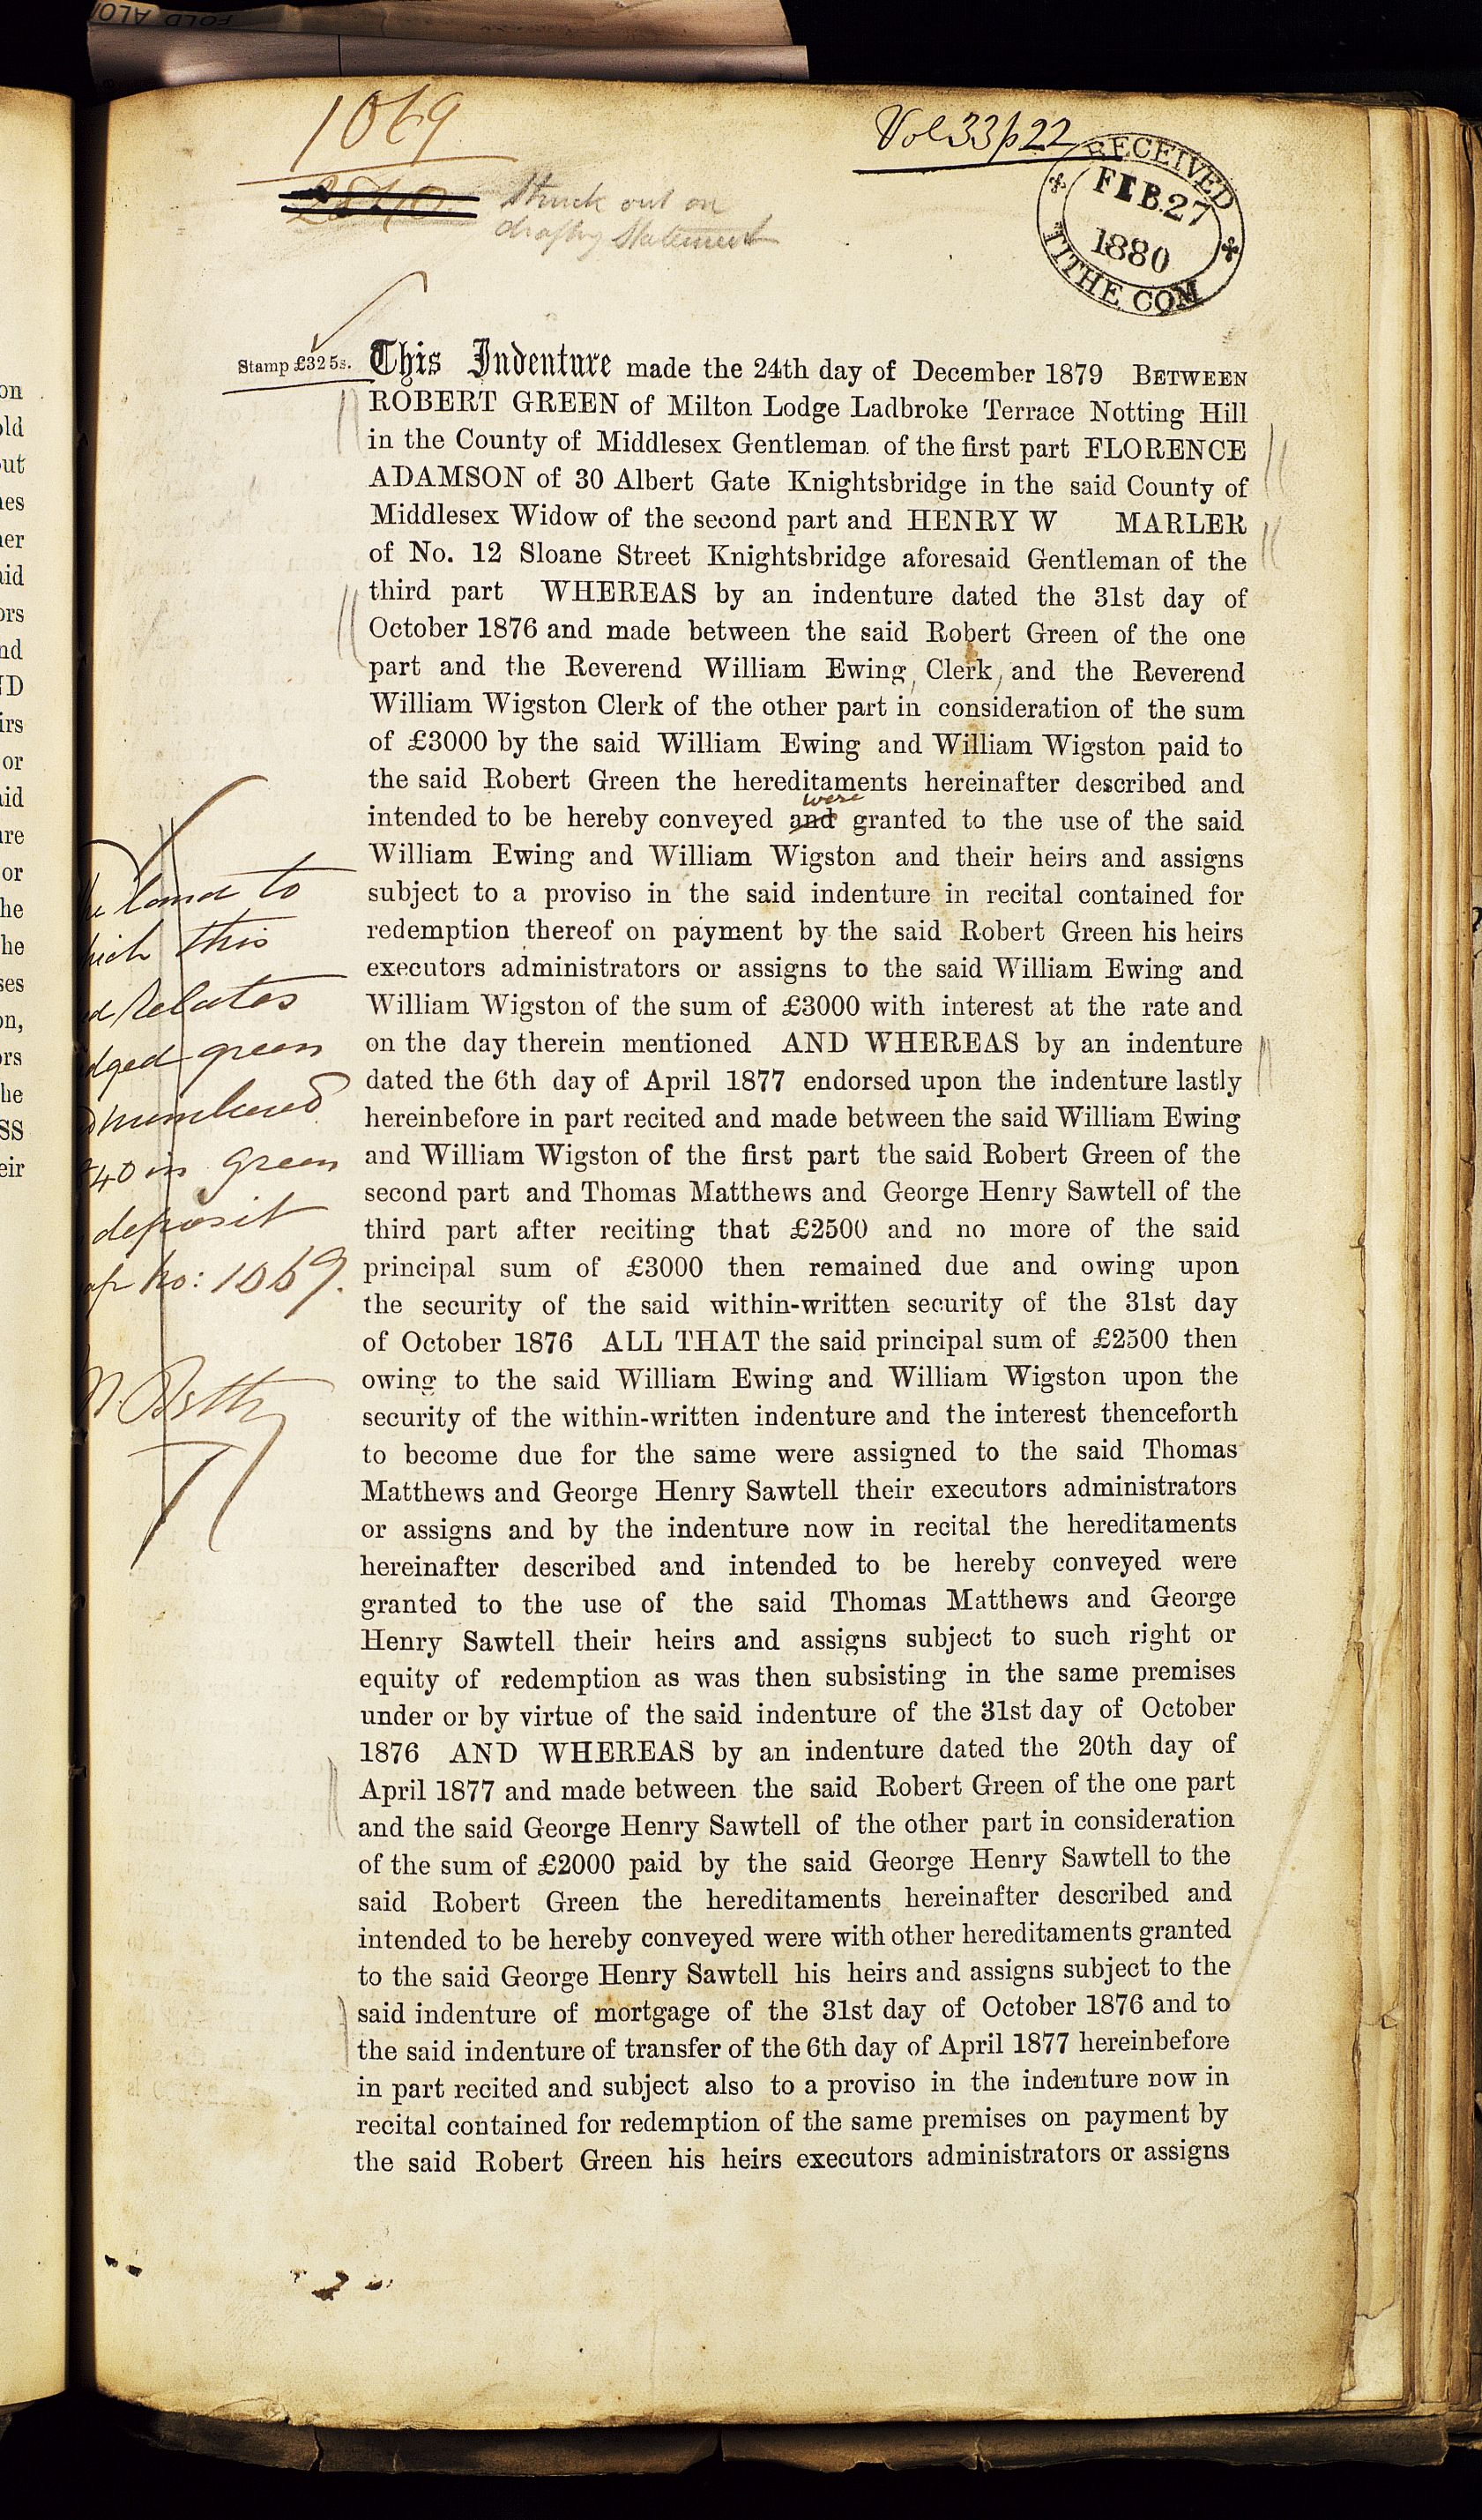 1069
Vol 33 p 22
RECEIVED
FEB.27
1880
TITHE COM
Struck out on
drafting Statement
Stamp £32 5s.
This Indenture made the 24th day of December 1879 BETWEEN
ROBERT GREEN of Milton Lodge Ladbroke Terrace Notting Hill
in the County of Middlesex Gentleman of the first part FLORENCE
ADAMSON of 30 Albert Gate Knightsbridge in the said County of
Middlesex Widow of the second part and HENRY W MARLER
of No. 12 Sloane Street Knightsbridge aforesaid Gentleman of the
third part WHEREAS by an indenture dated the 31st day of
October 1876 and made between the said Robert Green of the one
part and the Reverend William Ewing, Clerk, and the Reverend
William Wigston Clerk of the other part in consideration of the sum
of £3000 by the said William Ewing and William Wigston paid to
the said Robert Green the hereditaments hereinafter described and
were
intended to be hereby conveyed and granted to the use of the said
William Ewing and William Wigston and their heirs and assigns
subject to a proviso in the said indenture in recital contained for
redemption thereof on payment by the said Robert Green his heirs
executors administrators or assigns to the said William Ewing and
William Wigston of the sum of £3000 with interest at the rate and
on the day therein mentioned AND WHEREAS by an indenture
dated the 6th day of April 1877 endorsed upon the indenture lastly
hereinbefore in part recited and made between the said William Ewing
and William Wigston of the first part the said Robert Green of the
second part and Thomas Matthews and George Henry Sawtell of the
third part after reciting that £2500 and no more of the said
principal sum of £3000 then remained due and owing upon
the security of the said within-written security of the 31st day
of October 1876 ALL THAT the said principal sum of £2500 then
owing to the said William Ewing and William Wigston upon the
security of the within-written indenture and the interest thenceforth
to become due for the same were assigned to the said Thomas
Matthews and George Henry Sawtell their executors administrators
or assigns and by the indenture now in recital the hereditaments
hereinafter described and intended to be hereby conveyed were
granted to the use of the said Thomas Matthews and George
Henry Sawtell their heirs and assigns subject to such right or
equity of redemption as was then subsisting in the same premises
under or by virtue of the said indenture of the 31st day of October
1876 AND WHEREAS by an indenture dated the 20th day of
April 1877 and made between the said Robert Green of the one part
and the said George Henry Sawtell of the other part in consideration
of the sum of £2000 paid by the said George Henry Sawtell to the
said Robert Green the hereditaments hereinafter described and
intended to be hereby conveyed were with other hereditaments granted
to the said George Henry Sawtell his heirs and assigns subject to the
said indenture of mortgage of the 31st day of October 1876 and to
the said indenture of transfer of the 6th day of April 1877 hereinbefore
in part recited and subject also to a proviso in the indenture now in
recital contained for redemption of the same premises on payment by
the said Robert Green his heirs executors administrators or assigns
land to
this
relates
green
numbered
40 in green
deposit
No: 1069.